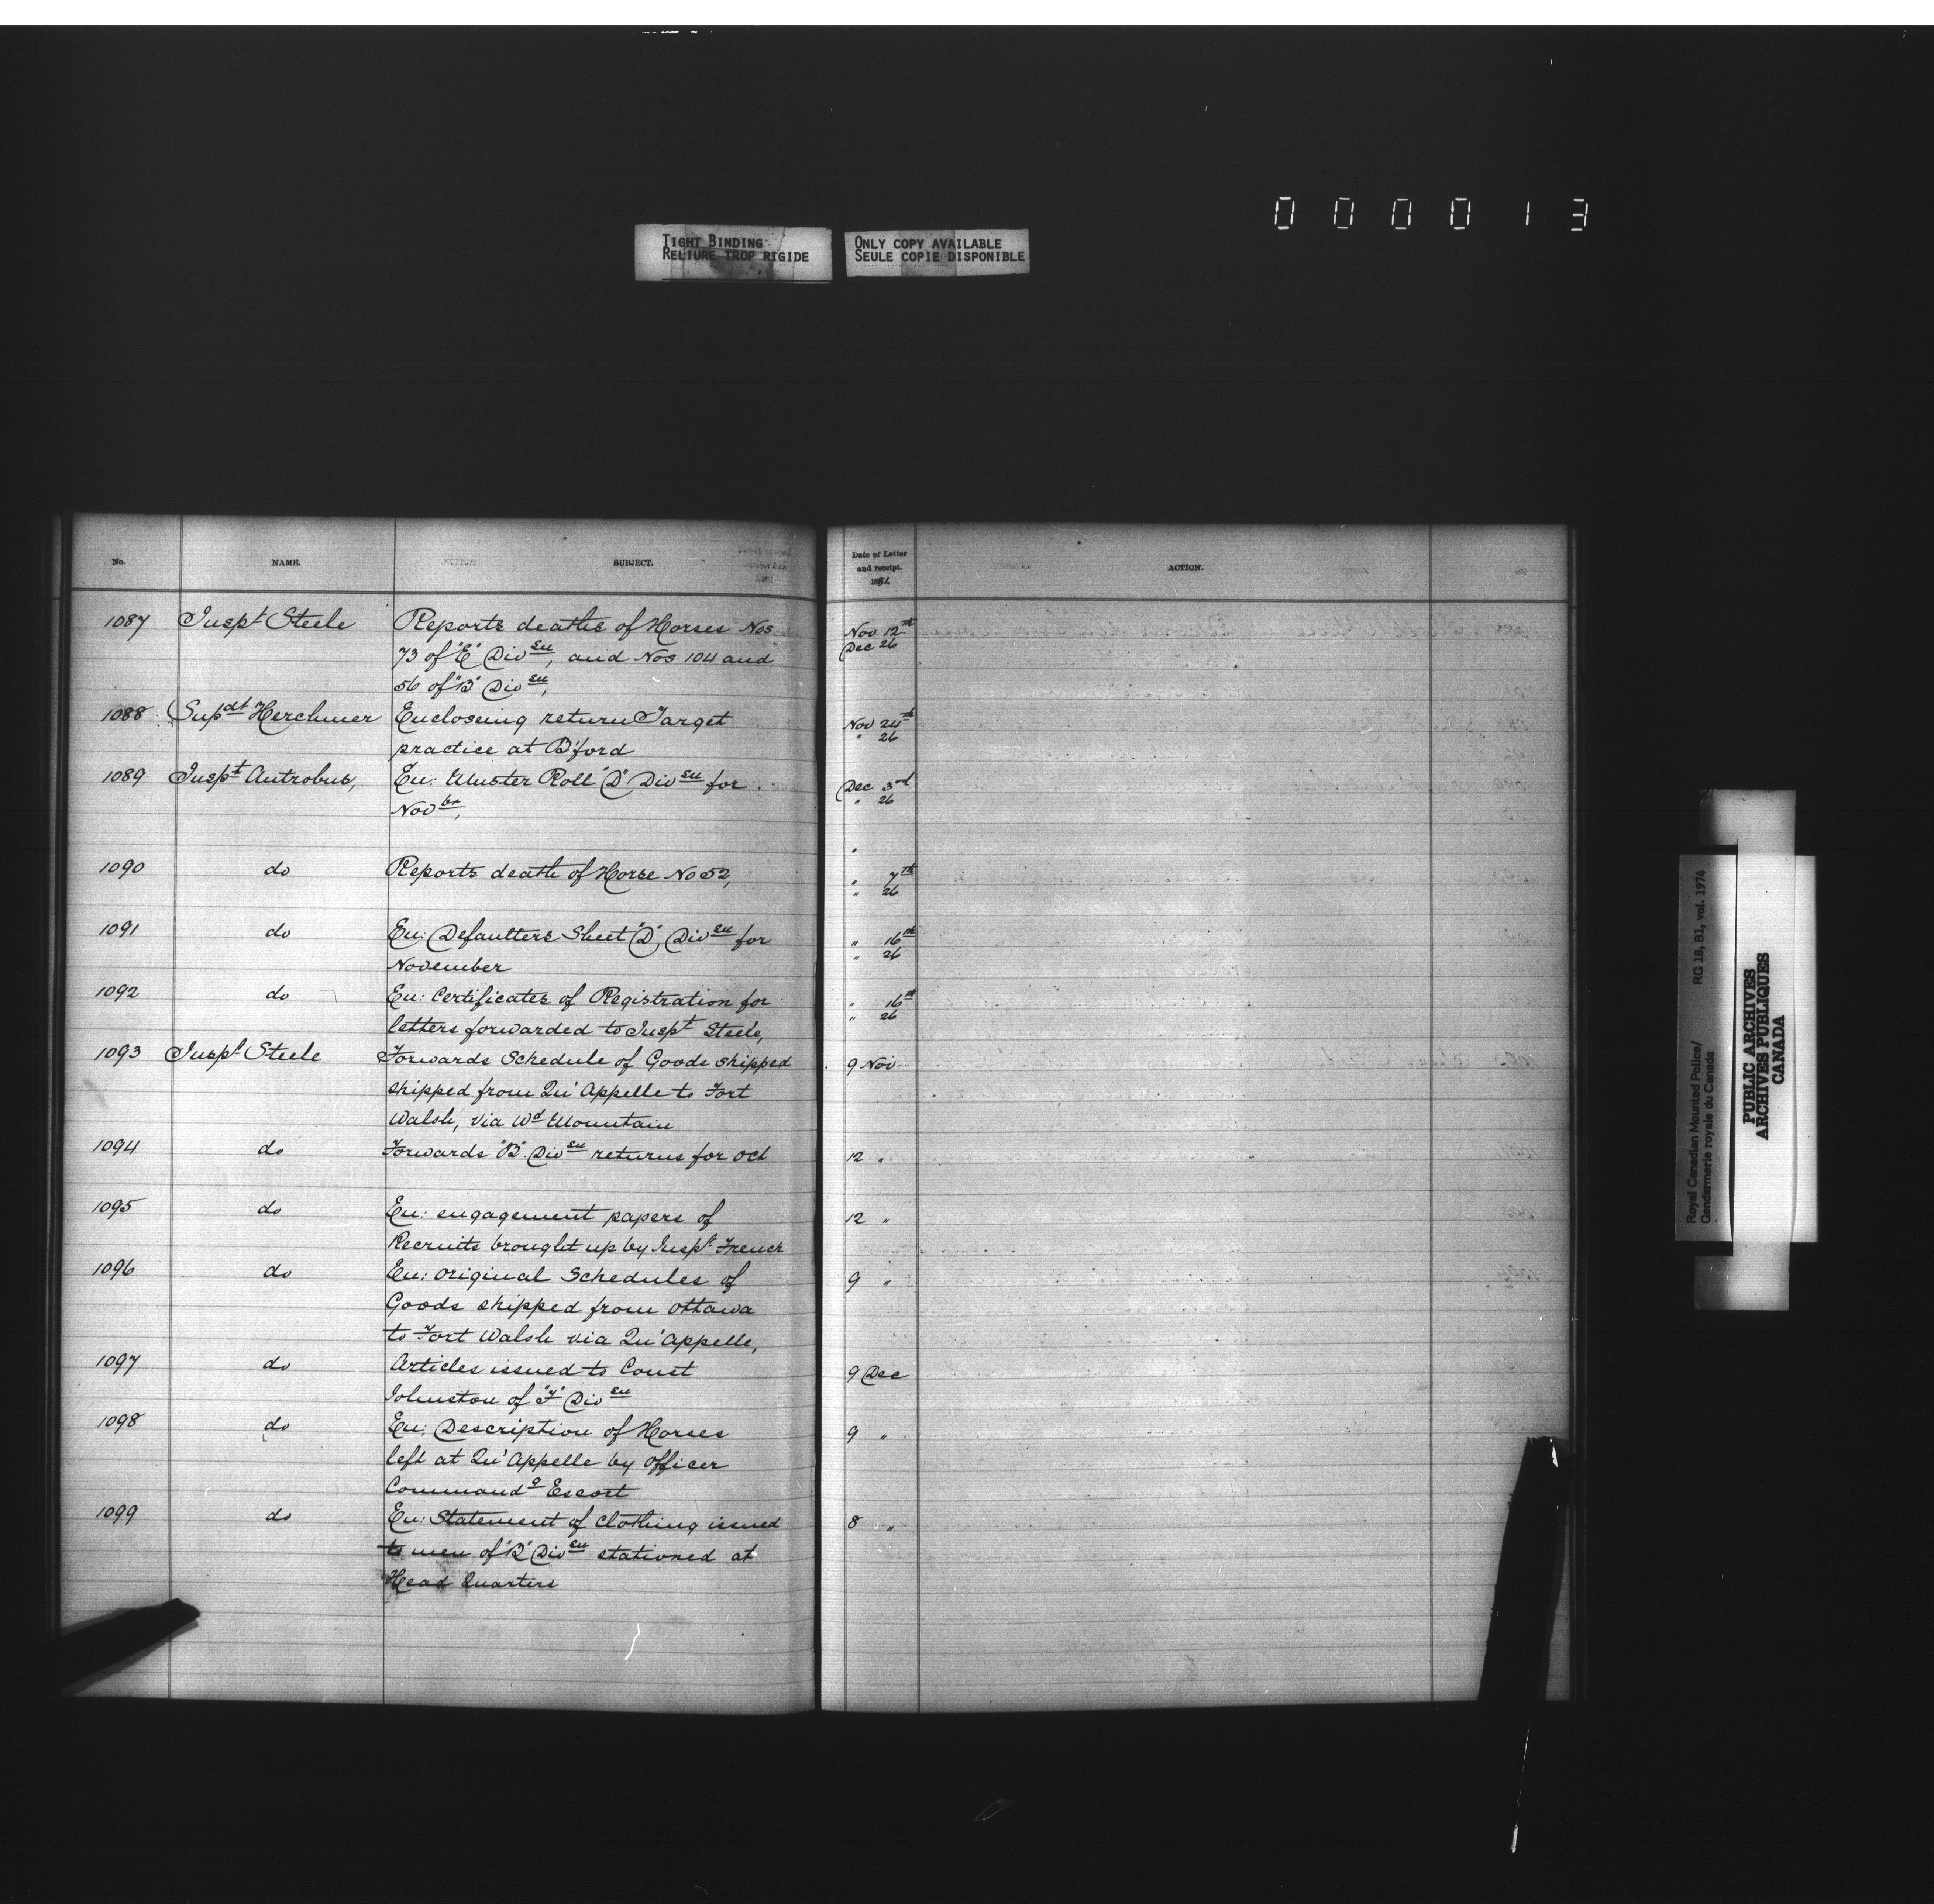 0 0 0 0 1 3
TIGHT BINDING
RELIURE TROP RIGIDE
ONLY COPY AVAILABLE
SEULE COPIE DISPONIBLE
No. NAME. SUBJECT. Date of Letter and receipt. 1881. ACTION.
1087 Inspt Steele Reports deaths of Horses Nos Nov 12th
73 of "E" Divsn, and Nos 104 and Dec 26
56 of "B" Divsn,
1088 Supdt Herchmer Encloseing return Target Nov 24th
practice at B'ford " 26
1089 Inspt Antrobus, En: Muster Roll "D" Divsn for Dec 3rd
Novbr, " 26
1090 do Reports death of Horse No 52, " 7th
" 26
1091 do En: Defaulters Sheet "D", Divsn for " 16th
November " 26
1092 do En: Certificates of Registration for " 16th
letters forwarded to Inspt Steele, " 26
1093 Inspt Steele Forwards Schedule of Goods shipped 9 Nov
shipped from Qu'Appelle to Fort
Walsh, via Wd Mountain
1094 do Forwards "B" Divsn returns for Oct 12 "
1095 do En: engagement papers of 12 "
Recruits brought up by Inspt French
1096 do En: Original Schedules of 9 "
Goods shipped from Ottawa
to Fort Walsh via Qu'Appelle,
1097 do Articles issued to Const 9 Dec
Johnston of "F" Divsn
1098 do En: Description of Horses 9 "
left at Qu'Appelle by Officer
Commandg Escort
1099 do En: Statement of Clothing issued 8 "
to men of "B" Divsn stationed at
Head Quarters
Royal Canadian Mounted Police/
Gendarmerie royale du Canada
RG 18, B1, vol. 1974
PUBLIC ARCHIVES
ARCHIVES PUBLIQUES
CANADA